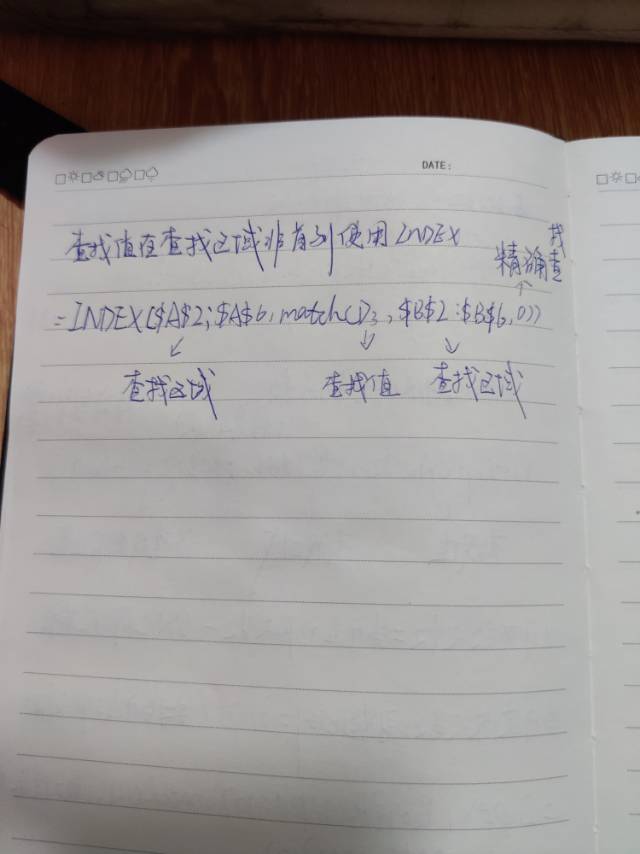 DATE:
查找值在查找区域非首列使用INDEX
精确查找
=INDEX($A$2:$A$6,match(D3,$B$2:$B$6,0))
查找区域 查找值 查找区域